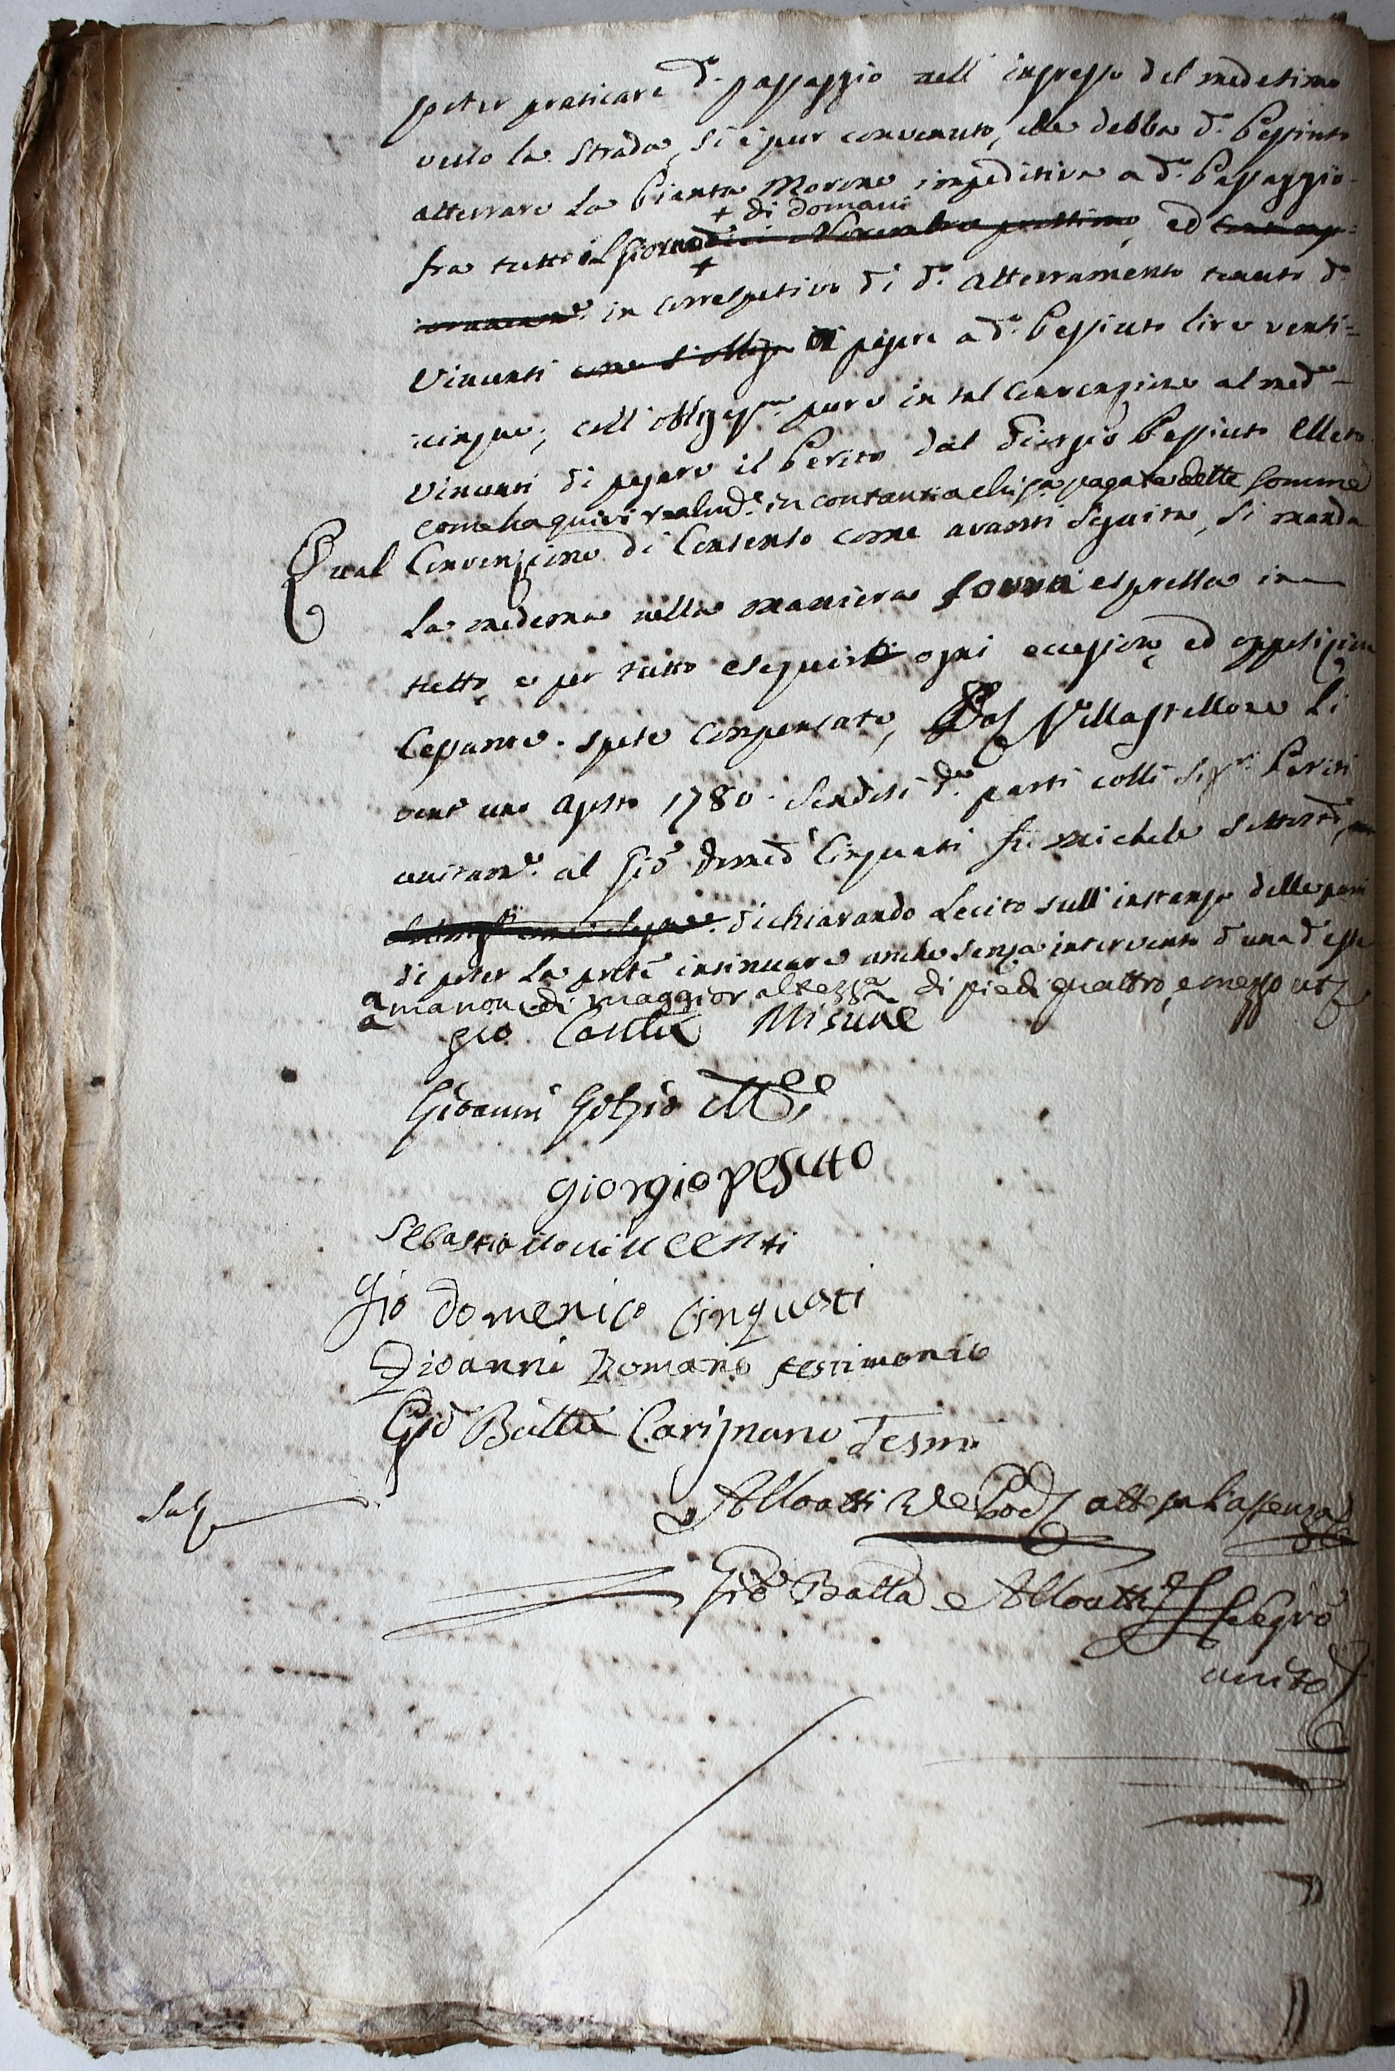 poter praticare d.º passaggio nell'ingresso del medesimo
verso la strada, si è pur convenuto, che debba d.º Pessiuto
atterrare la Pianta Morone impeditiva a d.º Passaggio
+ di domani
fra tutto il giorno dieci Novembre prossimo, ed
+
in correspetivo di d.º atterramento tenuto d.º
Vincenti come s'obliga di pagare a d.º Pessiuto lire venti=
cinque, coll'obligaz.ne pure in tal Convenzione al med.º
Vincenti di pagare il Perito dal Giorgio Pessiuto Eletto
come ha quivi realm.e in contanti a chi sp.a pagate dette somme
Qual Convenzione di Consenso come avanti seguita, si manda
la medema nella maniera sovra espressa in
tutto, e per tutto eseguirsi ogni eccezione, ed opposizione
Cessante. spese Compensate, Dat Villastellone li
vent'uno Agosto 1780. Sendosi d.e parti colli Sig.ri Periti
unitam.e al Gio Dom.co Cinquati fu Michele sottoscritti
dichiarando Lecito sull'instanza delle parti
di poter la pnte insinuare anche senza intervento d'una d'esse
a ma non di maggior altezza di piedi quattro, e mezzo
a gio Catta Misune
Giovanni Golzio
giorgio pesuto
Sebastiano vincenti
Gio domenico Cinquati
Gioanni Romano testimonio
Gio Batta Carignano Tesmo
Alloatti Vice Pod.à attesa l'assenza
Gio Batta Alloatti Segro
unito